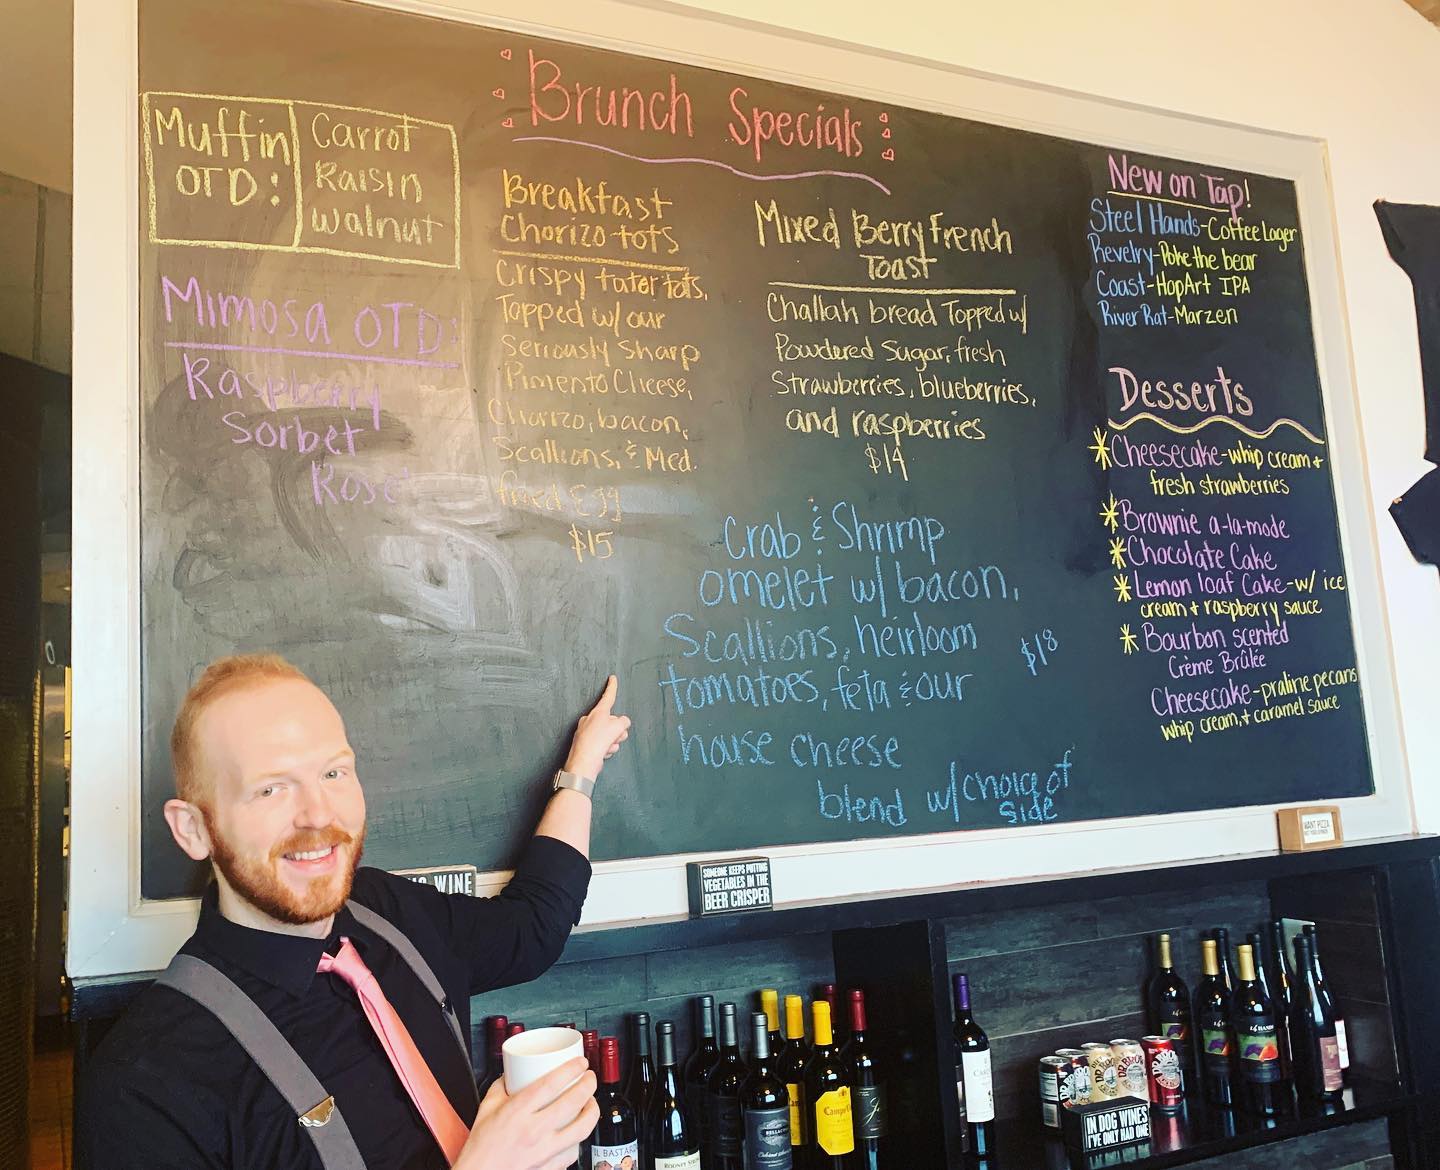 Brunch Specials
Muffin
OTD:
Carrot
Raisin
Walnut
Mimosa OTD:
Raspberry
Sorbet
Rosé
Breakfast
Chorizo-tots
Crispy tater tots,
Topped w/ our
Seriously Sharp
Pimento Cheese,
Chorizo, bacon,
Scallions, & Med.
fried Egg
$15
Mixed Berry French
Toast
Challah bread Topped w/
Powdered Sugar, fresh
Strawberries, blueberries,
and raspberries
$14
Crab & Shrimp
omelet w/ bacon,
Scallions, heirloom
tomatoes, feta & our
house cheese
blend w/ choice of
side
$18
New on Tap!
Steel Hands-Coffee Lager
Revelry-Poke the bear
Coast-HopArt IPA
River Rat-Marzen
Desserts
*Cheesecake-whip cream +
fresh strawberries
*Brownie a-la-mode
*Chocolate Cake
*Lemon loaf Cake-w/ ice
cream + raspberry sauce
*Bourbon scented
Crème Brûlée
Cheesecake-praline pecans
whip cream, + caramel sauce
WINE
SOMEONE KEEPS PUTTING
VEGETABLES IN THE
BEER CRISPER
WANT PIZZA
IN DOG WINES
I'VE ONLY HAD ONE